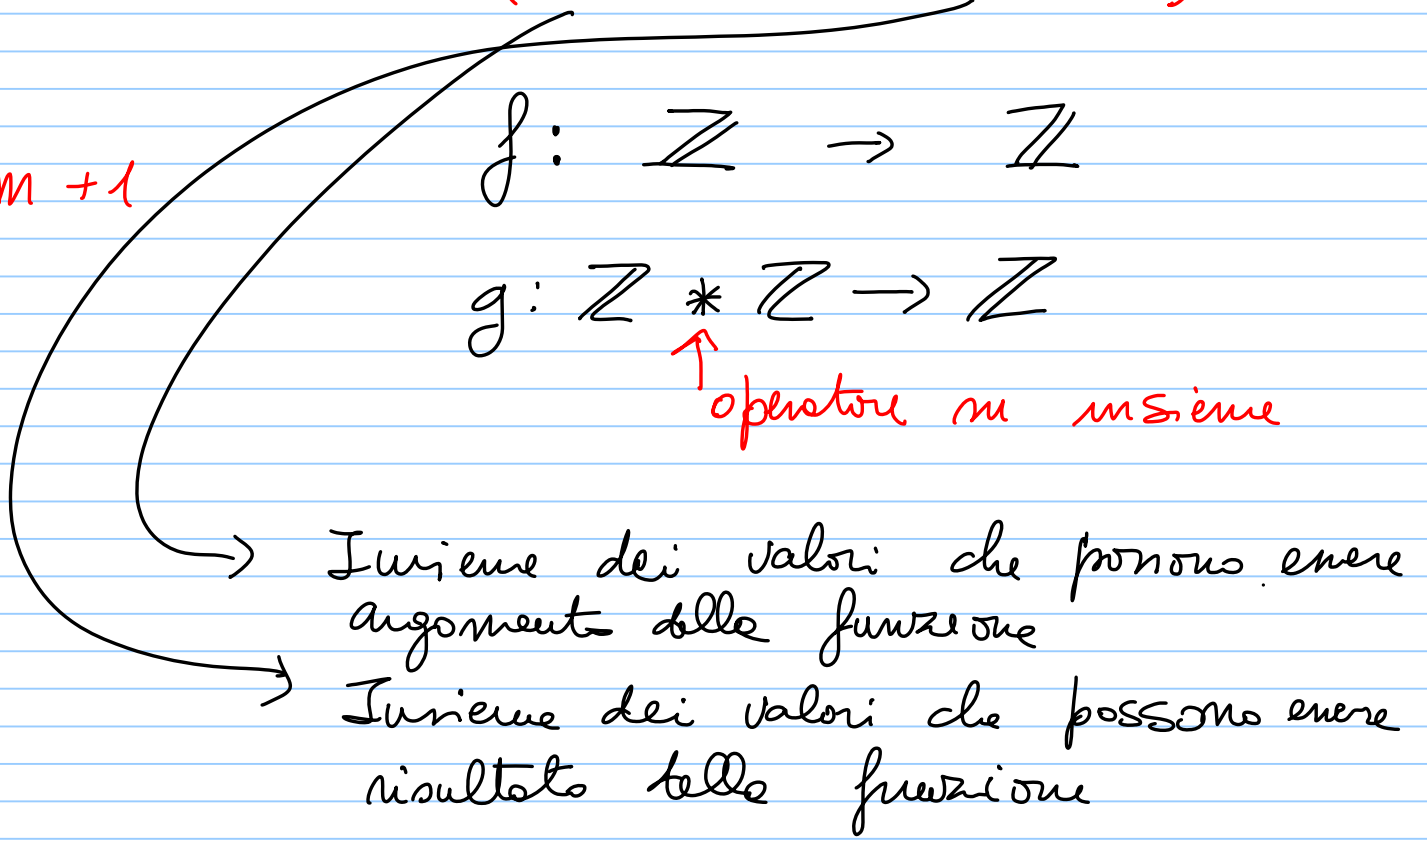 f: ℤ → ℤ
m + 1
g: ℤ * ℤ → ℤ
operatore su insieme
Insieme dei valori che possono essere
argomento della funzione
Insieme dei valori che possono essere
risultato della funzione